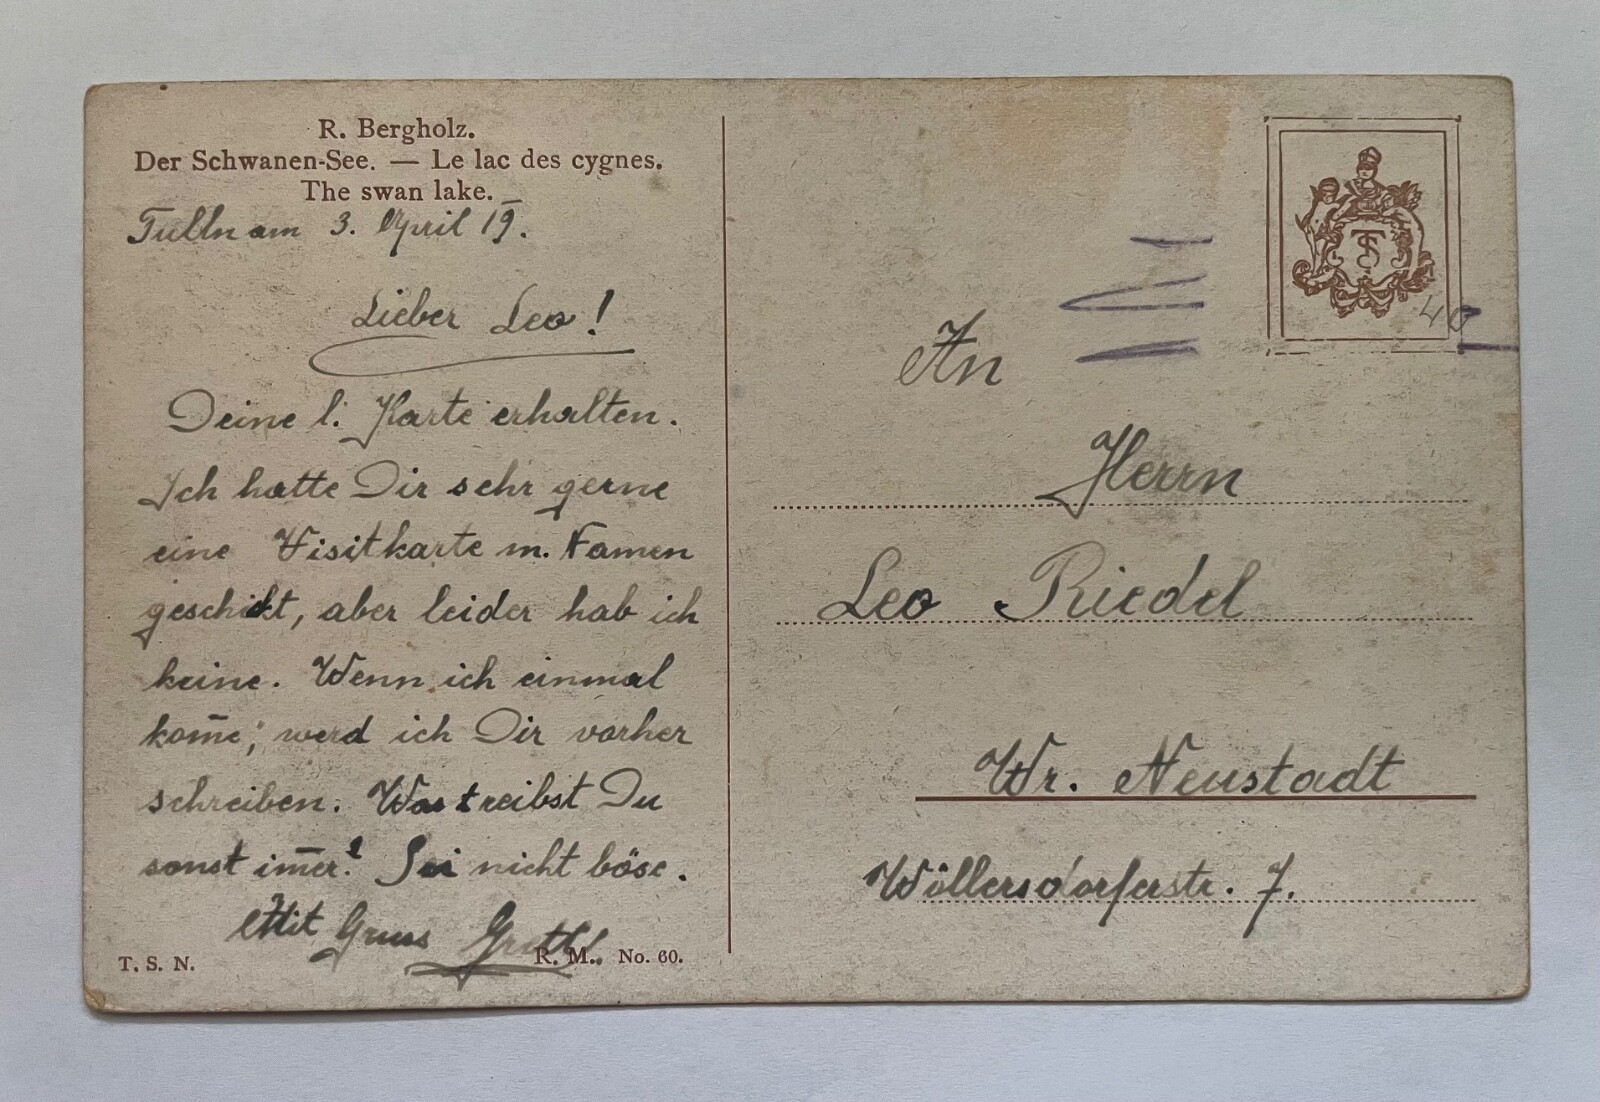 R. Bergholz.
Der Schwanen-See. — Le lac des cygnes.
The swan lake.
Tulln am 3. April 19.
Lieber Leo!
Deine l. Karte erhalten.
Ich hatte Dir sehr gerne
eine Visitkarte m. Namen
geschickt, aber leider hab ich
keine. Wenn ich einmal
kom̄e, werd ich Dir vorher
schreiben. Was treibst Du
sonst im̄er? Sei nicht böse.
Mit Gruss
T. S. N.
R. M. No. 60.
TS
40
An
Herrn
Leo Riedel
Wr. Neustadt
Wöllersdorferstr. 7.